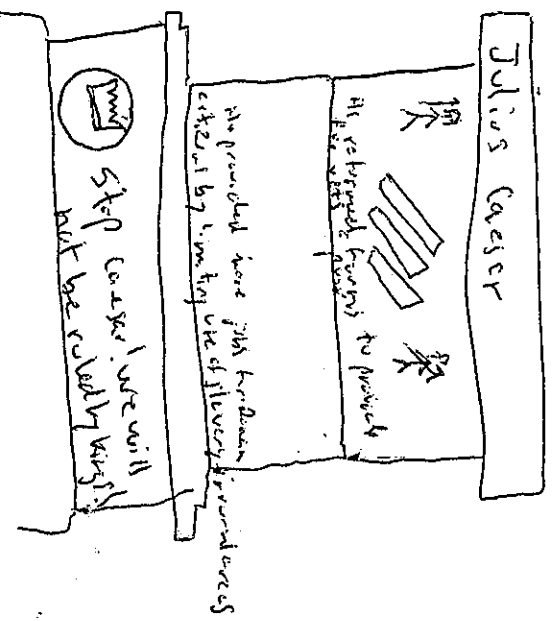 Julius Caeser
He returned to provide
He provided more jobs for Roman
citizens by limiting use of slavery in rural areas
Stop Caesar! we will
not be ruled by kings!